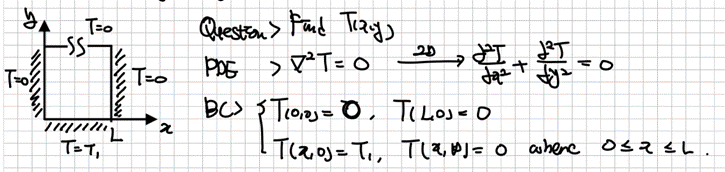 y
T=0
T=0
T=0
L
x
T=T₁
Question> Find T(x,y)
PDE > ∇²T=0 2D→ d²T/dx² + d²T/dy² = 0
BC> { T(0,0)= 0, T(L,0)=0
T(x,0)=T₁, T(x,∞)= 0 where 0≤x≤L.